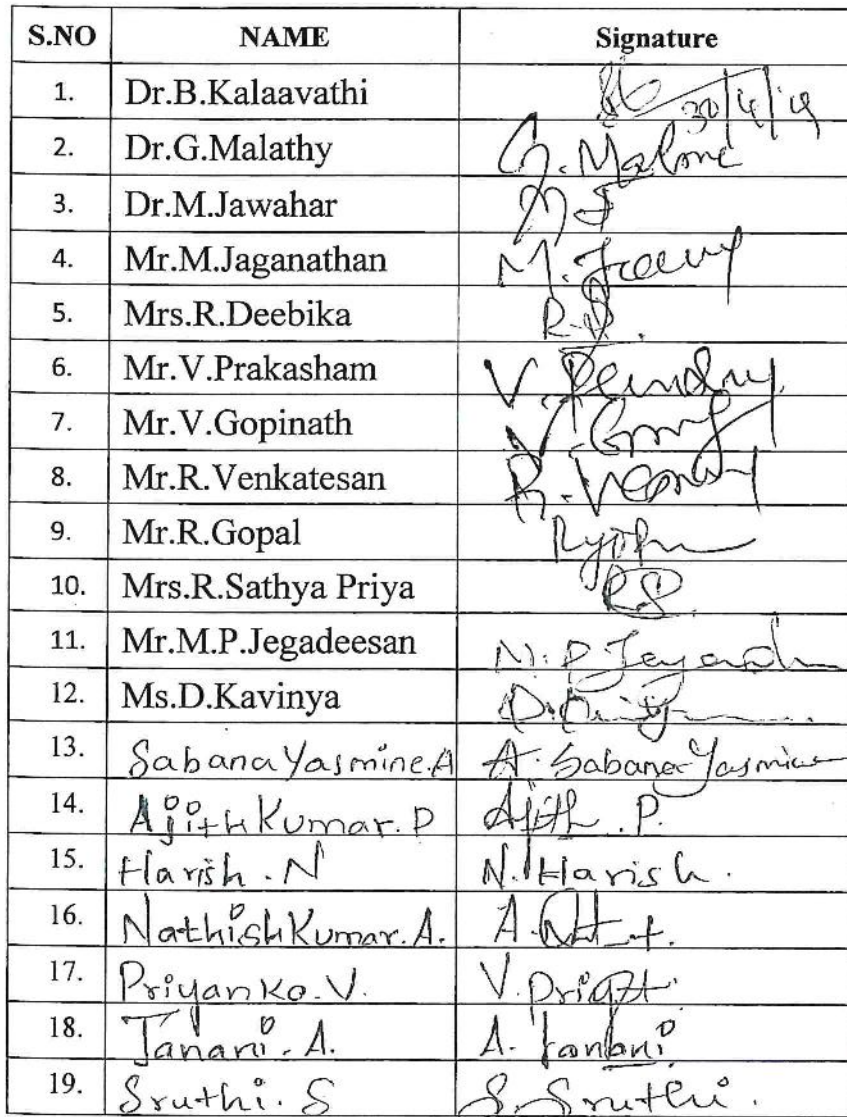 S.NO NAME Signature
1. Dr.B.Kalaavathi 30/4/19
2. Dr.G.Malathy G.
3. Dr.M.Jawahar
4. Mr.M.Jaganathan M.
5. Mrs.R.Deebika R.D.
6. Mr.V.Prakasham V.
7. Mr.V.Gopinath V.
8. Mr.R.Venkatesan R.
9. Mr.R.Gopal
10. Mrs.R.Sathya Priya RS.
11. Mr.M.P.Jegadeesan M.P.
12. Ms.D.Kavinya D.
13. Sabana Yasmine.A A. Sabana Yasmine
14. Ajith Kumar. P Ajith . P.
15. Harish . N N. Harish .
16. Nathish Kumar. A. A.
17. Priyanka. V. V.
18. Janani . A. A. Janani
19. Sruthi. S S. Sruthi.